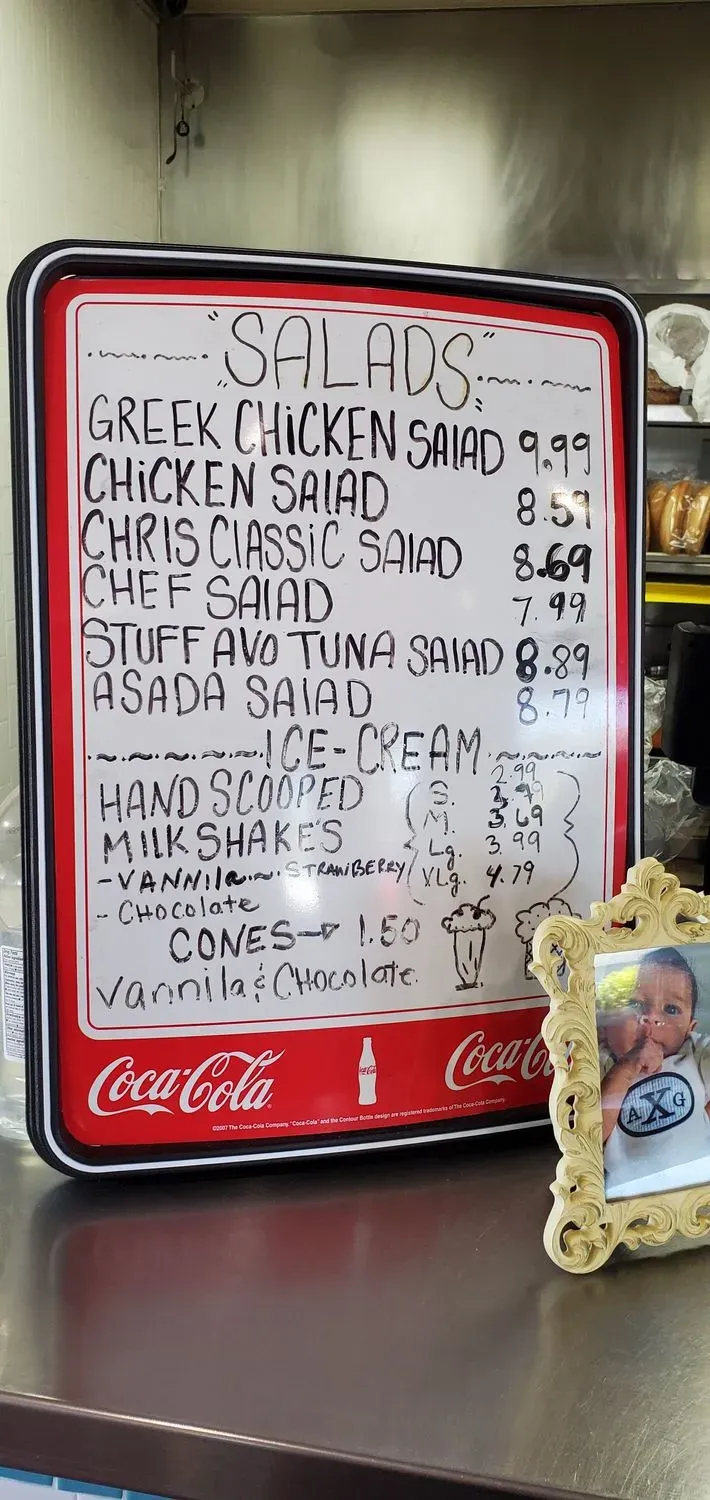 "SALADS"
GREEK CHiCKEN SAlAD 9.99
CHiCKEN SAlAD 8.59
CHRIS ClASSiC SAlAD 8.69
CHEF SAlAD 7.99
STUFF AVO TUNA SAlAD 8.89
ASADA SAlAD 8.79
ICE-CREAM
2.99
HAND SCOOPED S.
MILKSHAKE'S M. 3.69
Lg. 3.99
-VANNIla STRAWBERRY VLg. 4.79
- CHOcolate
CONES→ 1.50
Vannila & CHOcolate.
Coca-Cola Coca-Co
©2007 The Coca-Cola Company. "Coca-Cola" and the Contour Bottle design are registered trademarks of The Coca-Cola Company.
A X G